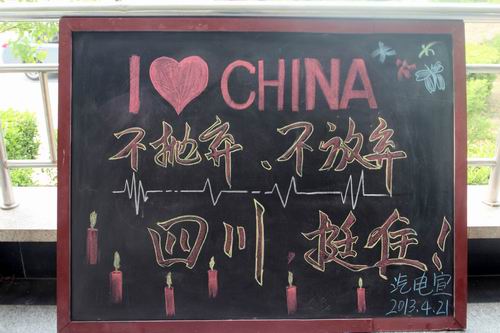 I ❤ CHINA
不抛弃、不放弃
四川 挺住!
汽电宣
2013.4.21